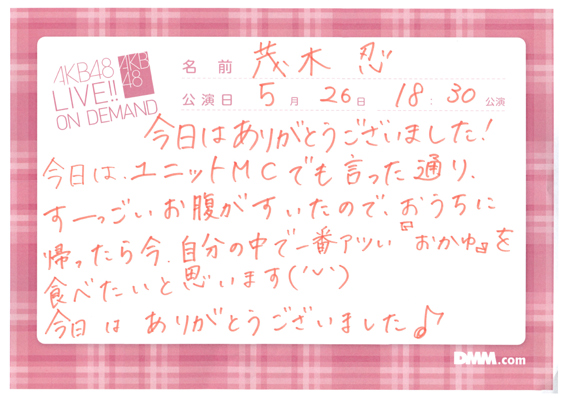 AKB48
LIVE!!
ON DEMAND
AKB
48
名前 茂木忍
公演日 5月26日 18:30公演
今日はありがとうございました!
今日は、ユニットMCでも言った通り、
すーっごいお腹がすいたので、おうちに
帰ったら今、自分の中で一番アツい『おかゆ』を
食べたいと思います('ω')
今日は ありがとうございました♪
DMM.com